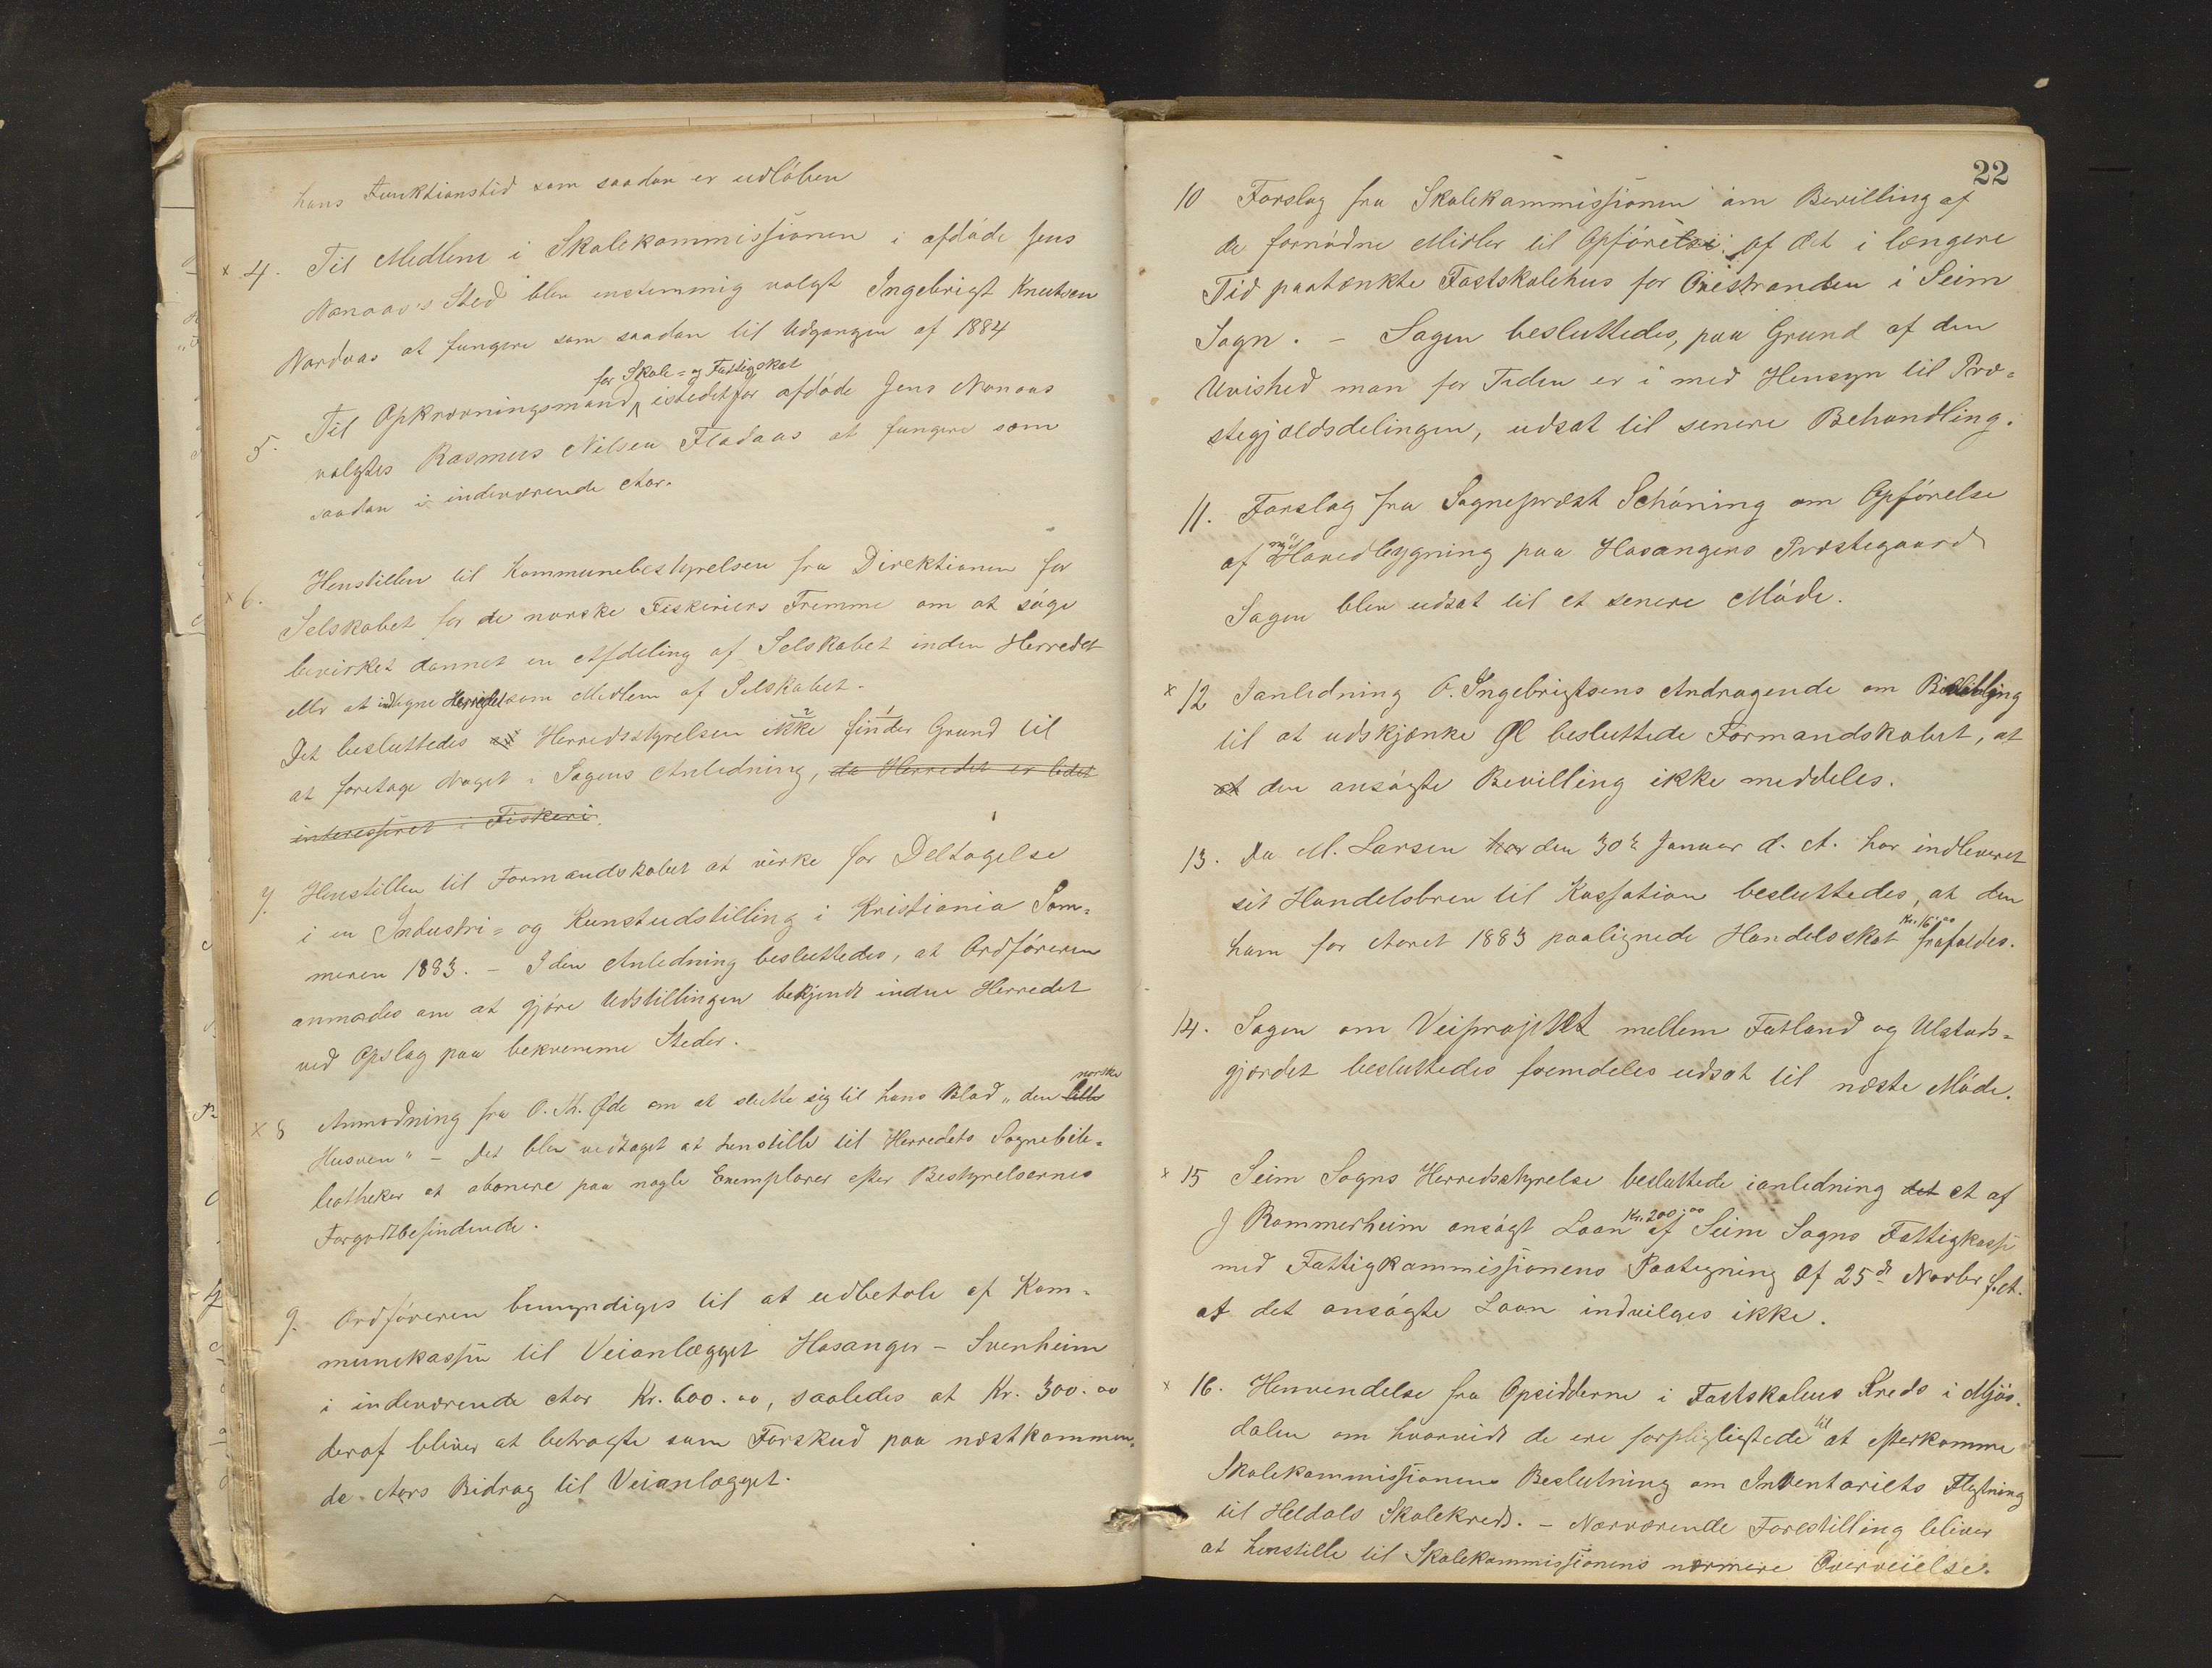 hans Funktionstid som saadan er udløben
x 4. Til Medlem i Skolekommissionen i afdøde Jens
Nanaas's Sted blev enstemmig valgt Ingebrigt Knutsen
Nordvas at fungere som saadan til Udgangen af 1884
for Skole= og Fattigskat
5. Til Opkrævningsmand istedetfor afdøde Jens Nanaas
valgtes Rasmus Nilsen Fladaas at fungere som
saadan i indeværende Aar.
x 6. Henstillen til Kommunebestyrelsen fra Direktionen for
Selskabet for de norske Fiskeriers Fremme om at søge
bevirket dannet en Afdeling af Selskabet inden Herredet
eller at indtegne Herredet som Medlem af Selskabet.
Det besluttedes Herredsstyrelsen ikke finder Grund til
at foretage Noget i Sagens Anledning, da Herredet er lidet
interesseret i Fiskeri.
7. Henstillen til Formandskabet at virke for Deltagelse
i en Industri= og Kunstudstilling i Kristiania Som=
meren 1883. – I den Anledning besluttedes, at Ordføreren
anmodes om at gjøre Udstillingen bekjendt inden Herredet
ved Opslag paa bekvemme Steder.
norske
x 8 Anmodning fra O. Th. Øde om at slutte sig til hans Blad „den lille
Husven" – Det blev vedtaget at henstille til Herredets Sognebib=
liotheker at abonere paa nogle Exemplarer efter Bestyrelsernes
Forgodtbefindende.
9. Ordføreren bemyndiges til at udbetale af Kom=
munekassen til Veianlægget Hosanger – Svenheim
i indeværende Aar Kr. 600.00, saaledes at Kr. 300.00
deraf bliver at betragte som Forskud paa næstkommen=
de Aars Bidrag til Veianlægget.
22
10 Forslag fra Skolekommissionen om Bevilling af
de fornødne Midler til Opførelse af det i længere
Tid paatænkte Fastskolehus for Ørestranden i Seim
Sogn. – Sagen besluttedes, paa Grund af den
Uvished man for Tiden er i med Hensyn til Præ=
stegjældsdelingen, udsat til senere Behandling.
11. Forslag fra Sogneprest Schøning om Opførelse
ny
af Hovedbygning paa Hosangers Præstegaard
Sagen blev udsat til et senere Møde.
x 12 Ianledning O. Ingebrigtsens Andragende om Bevilling
til at udskjænke Øl besluttede Formandskabet, at
at den ansøgte Bevilling ikke meddeles.
13. Da M. Larsen har den 30te Januar d. A. har indleveret
sit Handelsbrev til Kassation besluttedes, at den
Kr. 16.00
ham for Aaret 1883 paalignede Handelsskat frafaldes.
14. Sagen om Veiprojektet mellem Fatland og Ulstads=
gjerdet besluttedes fremdeles udsat til næste Møde.
x 15 Seim Sogns Herredsstyrelse besluttede ianledning det et af
Kr. 200.00
J Rommerheim ansøgt Laan af Seim Sogns Fattigkasse
med Fattigkommissionens Paategning af 25de Novbr f. A.
at det ansøgte Laan indvilges ikke.
x 16. Henvendelse fra Opsidderne i Fastskolens Kreds i Mjøs=
til
dalen om hvorvidt de ere forpligtigtede at efterkomme
Skolekommissionens Beslutning om Inventariets Flytning
til Heldals Skolekreds. – Nærværende Forestilling bliver
at henstille til Skolekommissionens nærmere Overveielse.